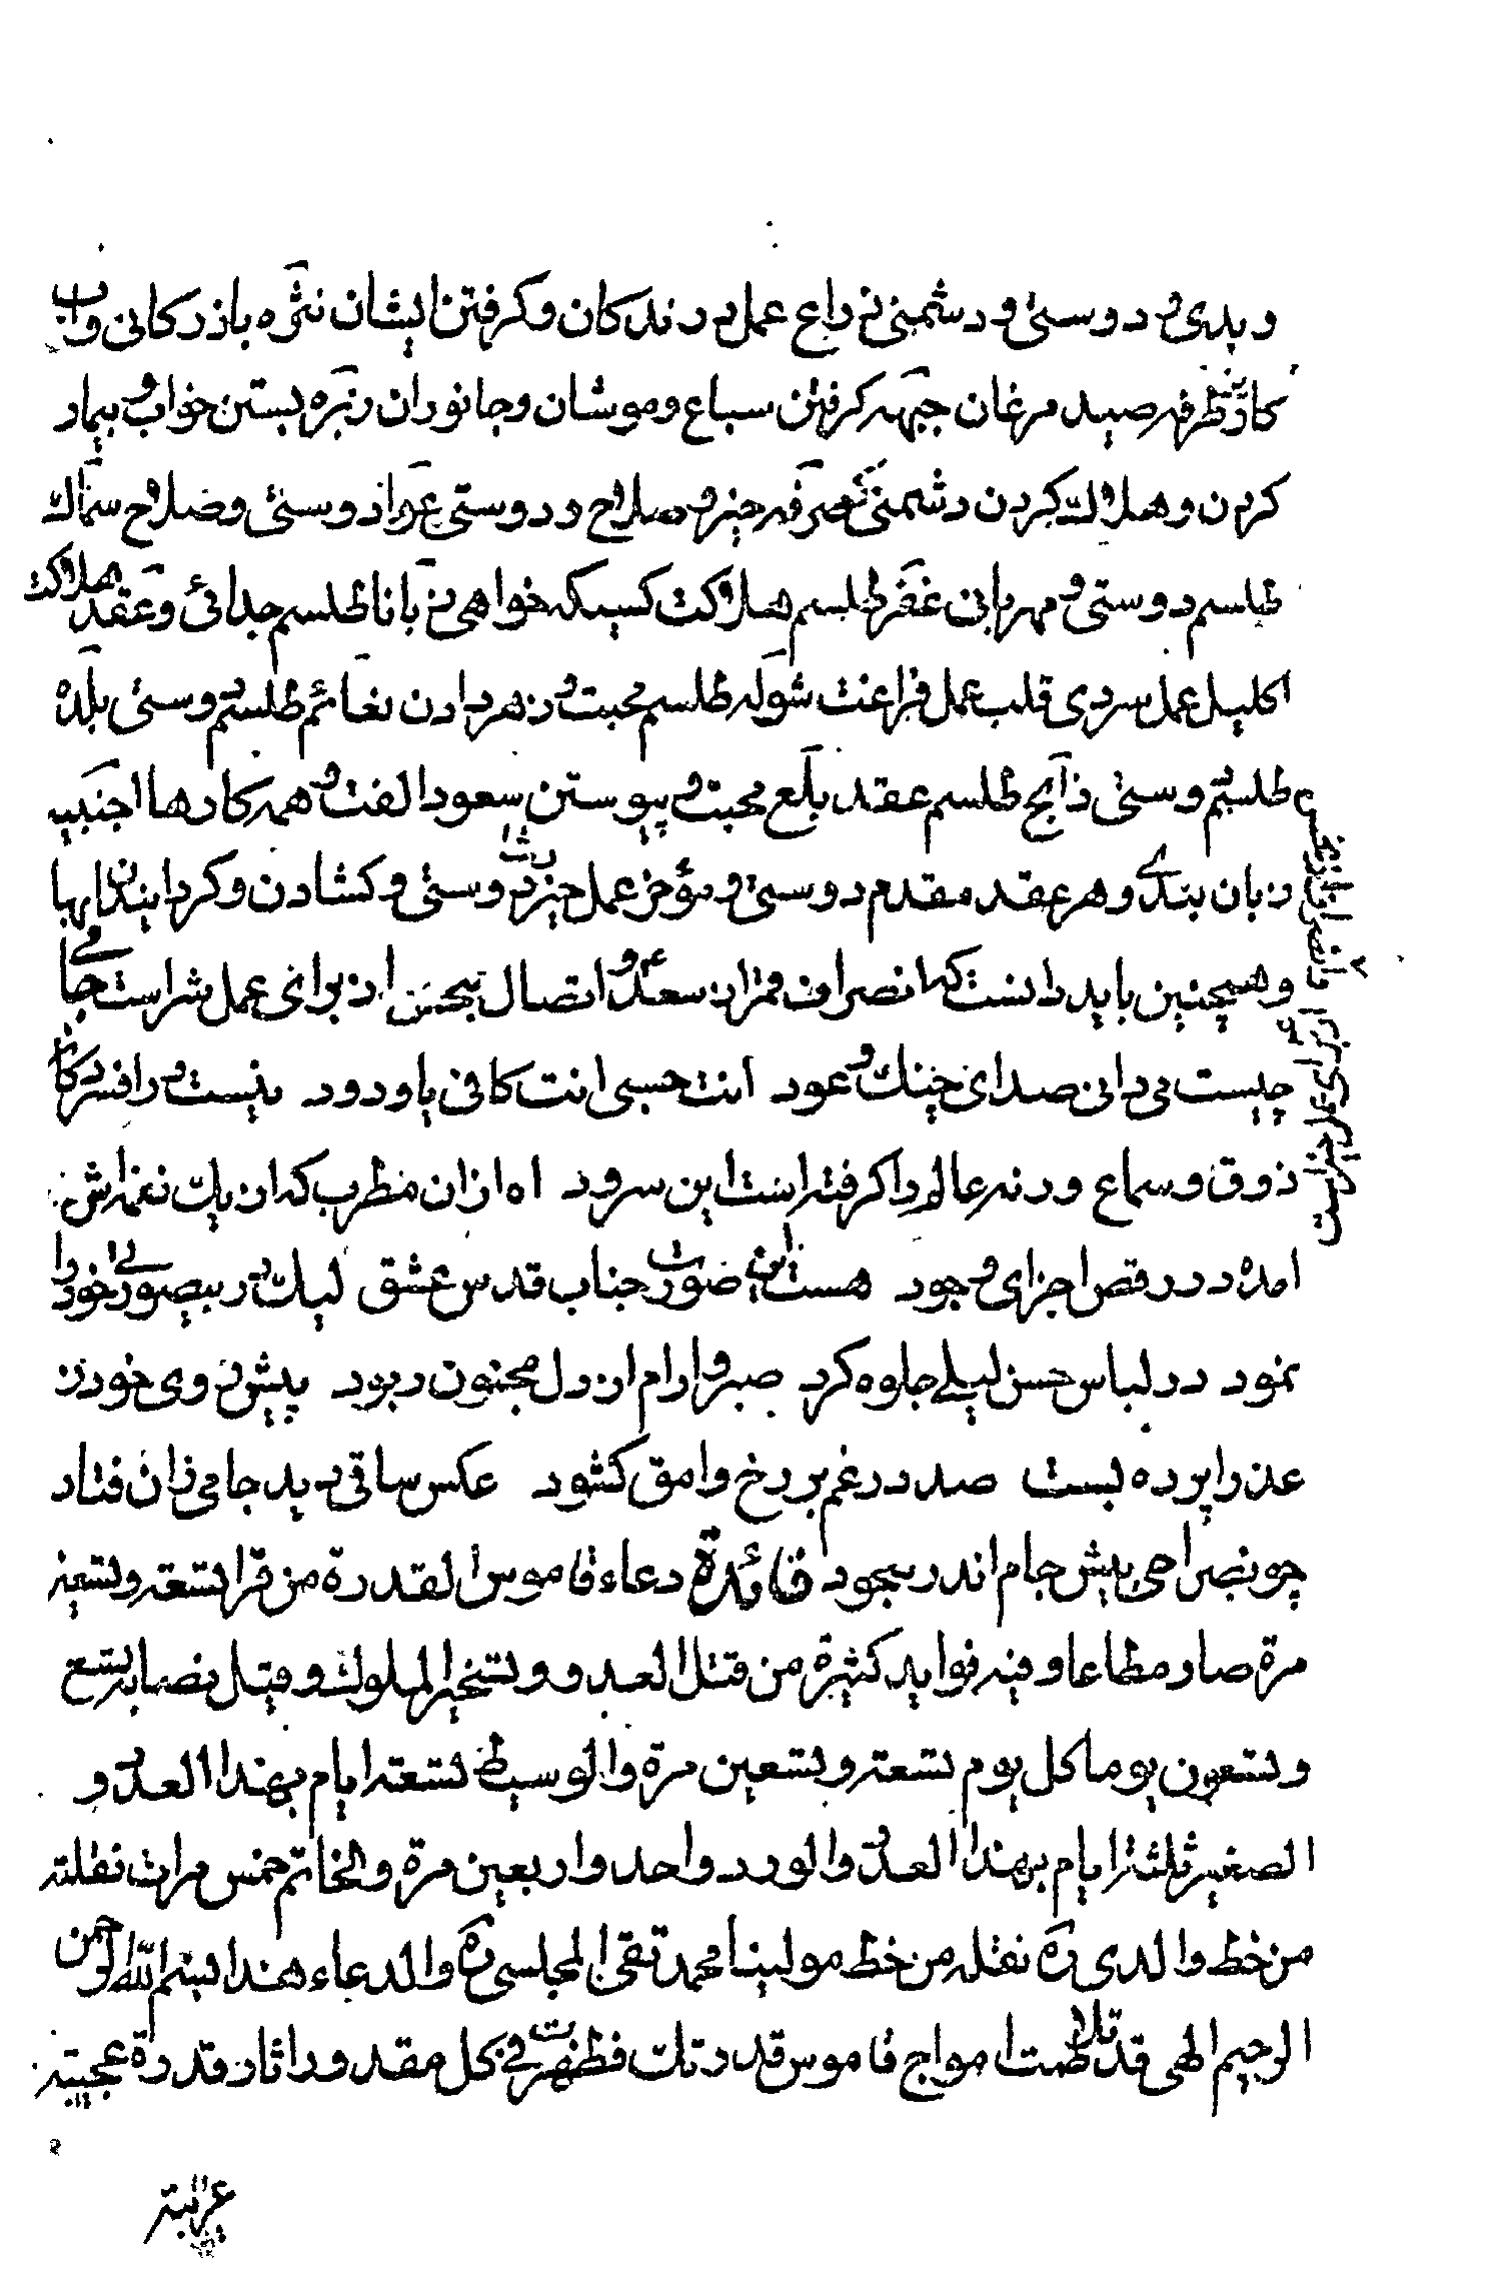 و بدی و دوستی و دشمنی ذراع عمل درندکان و کرفتن ایشان نثره بازرکانی و آب
کار طرفه صید مرغان جبهه کرفتن سباع و موشان و جانوران زبره بستن خواب و بیمار
کردن و هلاک کردن دشمنی صرفه خیر و صلاح و دوستی عوا دوستی و صلاح سماک
طلسم دوستی و مهربانی غفر طلسم هلاکت کسیکه خواهی زبانا طلسم جدائی و عقد هلاکت
اکلیل عمل سردی قلب عمل فراغت شوله طلسم محبت و زهر دادن نعائم طلسم دوستی بلده
طلسم دوستی ذابح طلسم عقد بلع محبت و پیوستن سعود الفت و همه کارها اخبیه
زبان بندی و هر عقد مقدم دوستی و مؤخر عمل خیر رشا دوستی و کشادن و کردانیدن ابها
و همچنین باید دانست که انصراف قمر از سعد و اتصال بنحس از برای عمل شر است جامی
چیست می دانی صدای چنک و عود انت حسبی انت کافی یا ودود نیست در افسردکان
ذوق و سماع ورنه عالم را کرفته است این سرود اه ازان مطرب که از یک نغمه اش
امده در رقص اجزای وجود هست این صورت جناب قدس عشق لیک در بیصورتی خود را
نمود در لباس حسن لیلی جلوه کرد صبر و ارام از دل مجنون ربود پیش روی خود ز
عذرا پرده بست صد در غم بر رخ وامق کشود عکس ساقی دید جامی زان فتاد
چو نصراحی پیش جام اندر سجود فائدة دعاء قاموس القدرة من قرا تسعة و تسعین
مرة صار مطاعا و فیه فواید کثیرة من قتل العدو و تسخیر الملوک و قیل نصابه تسع
و تسعون یوما کل یوم تسعة و تسعین مرة و الوسیط تسعة ایام بهذا العدد و
الصغیر ثلثة ایام بهذا العدد و الورد واحد و اربعین مرة و الخاتم خمس مرات نقلته
من خط والدی ره نقله من خط مولینا محمد تقی المجلسی ره و الدعاء هذا بسم الله الرحمن
الرحیم الهی قد تلاطمت امواج قاموس قدرتک فظهرت فی کل مقدور اثار قدرة عجیبة
غریبة